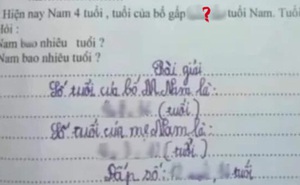 Hiện nay Nam 4 tuổi, tuổi của bố gấp ? tuổi Nam. Tuổi
Hỏi :
Nam bao nhiêu tuổi ?
Nam bao nhiêu tuổi ?
Bài giải
Số tuổi của bố Nam là:
(tuổi)
Số tuổi của mẹ Nam là:
(tuổi)
Đáp số: tuổi